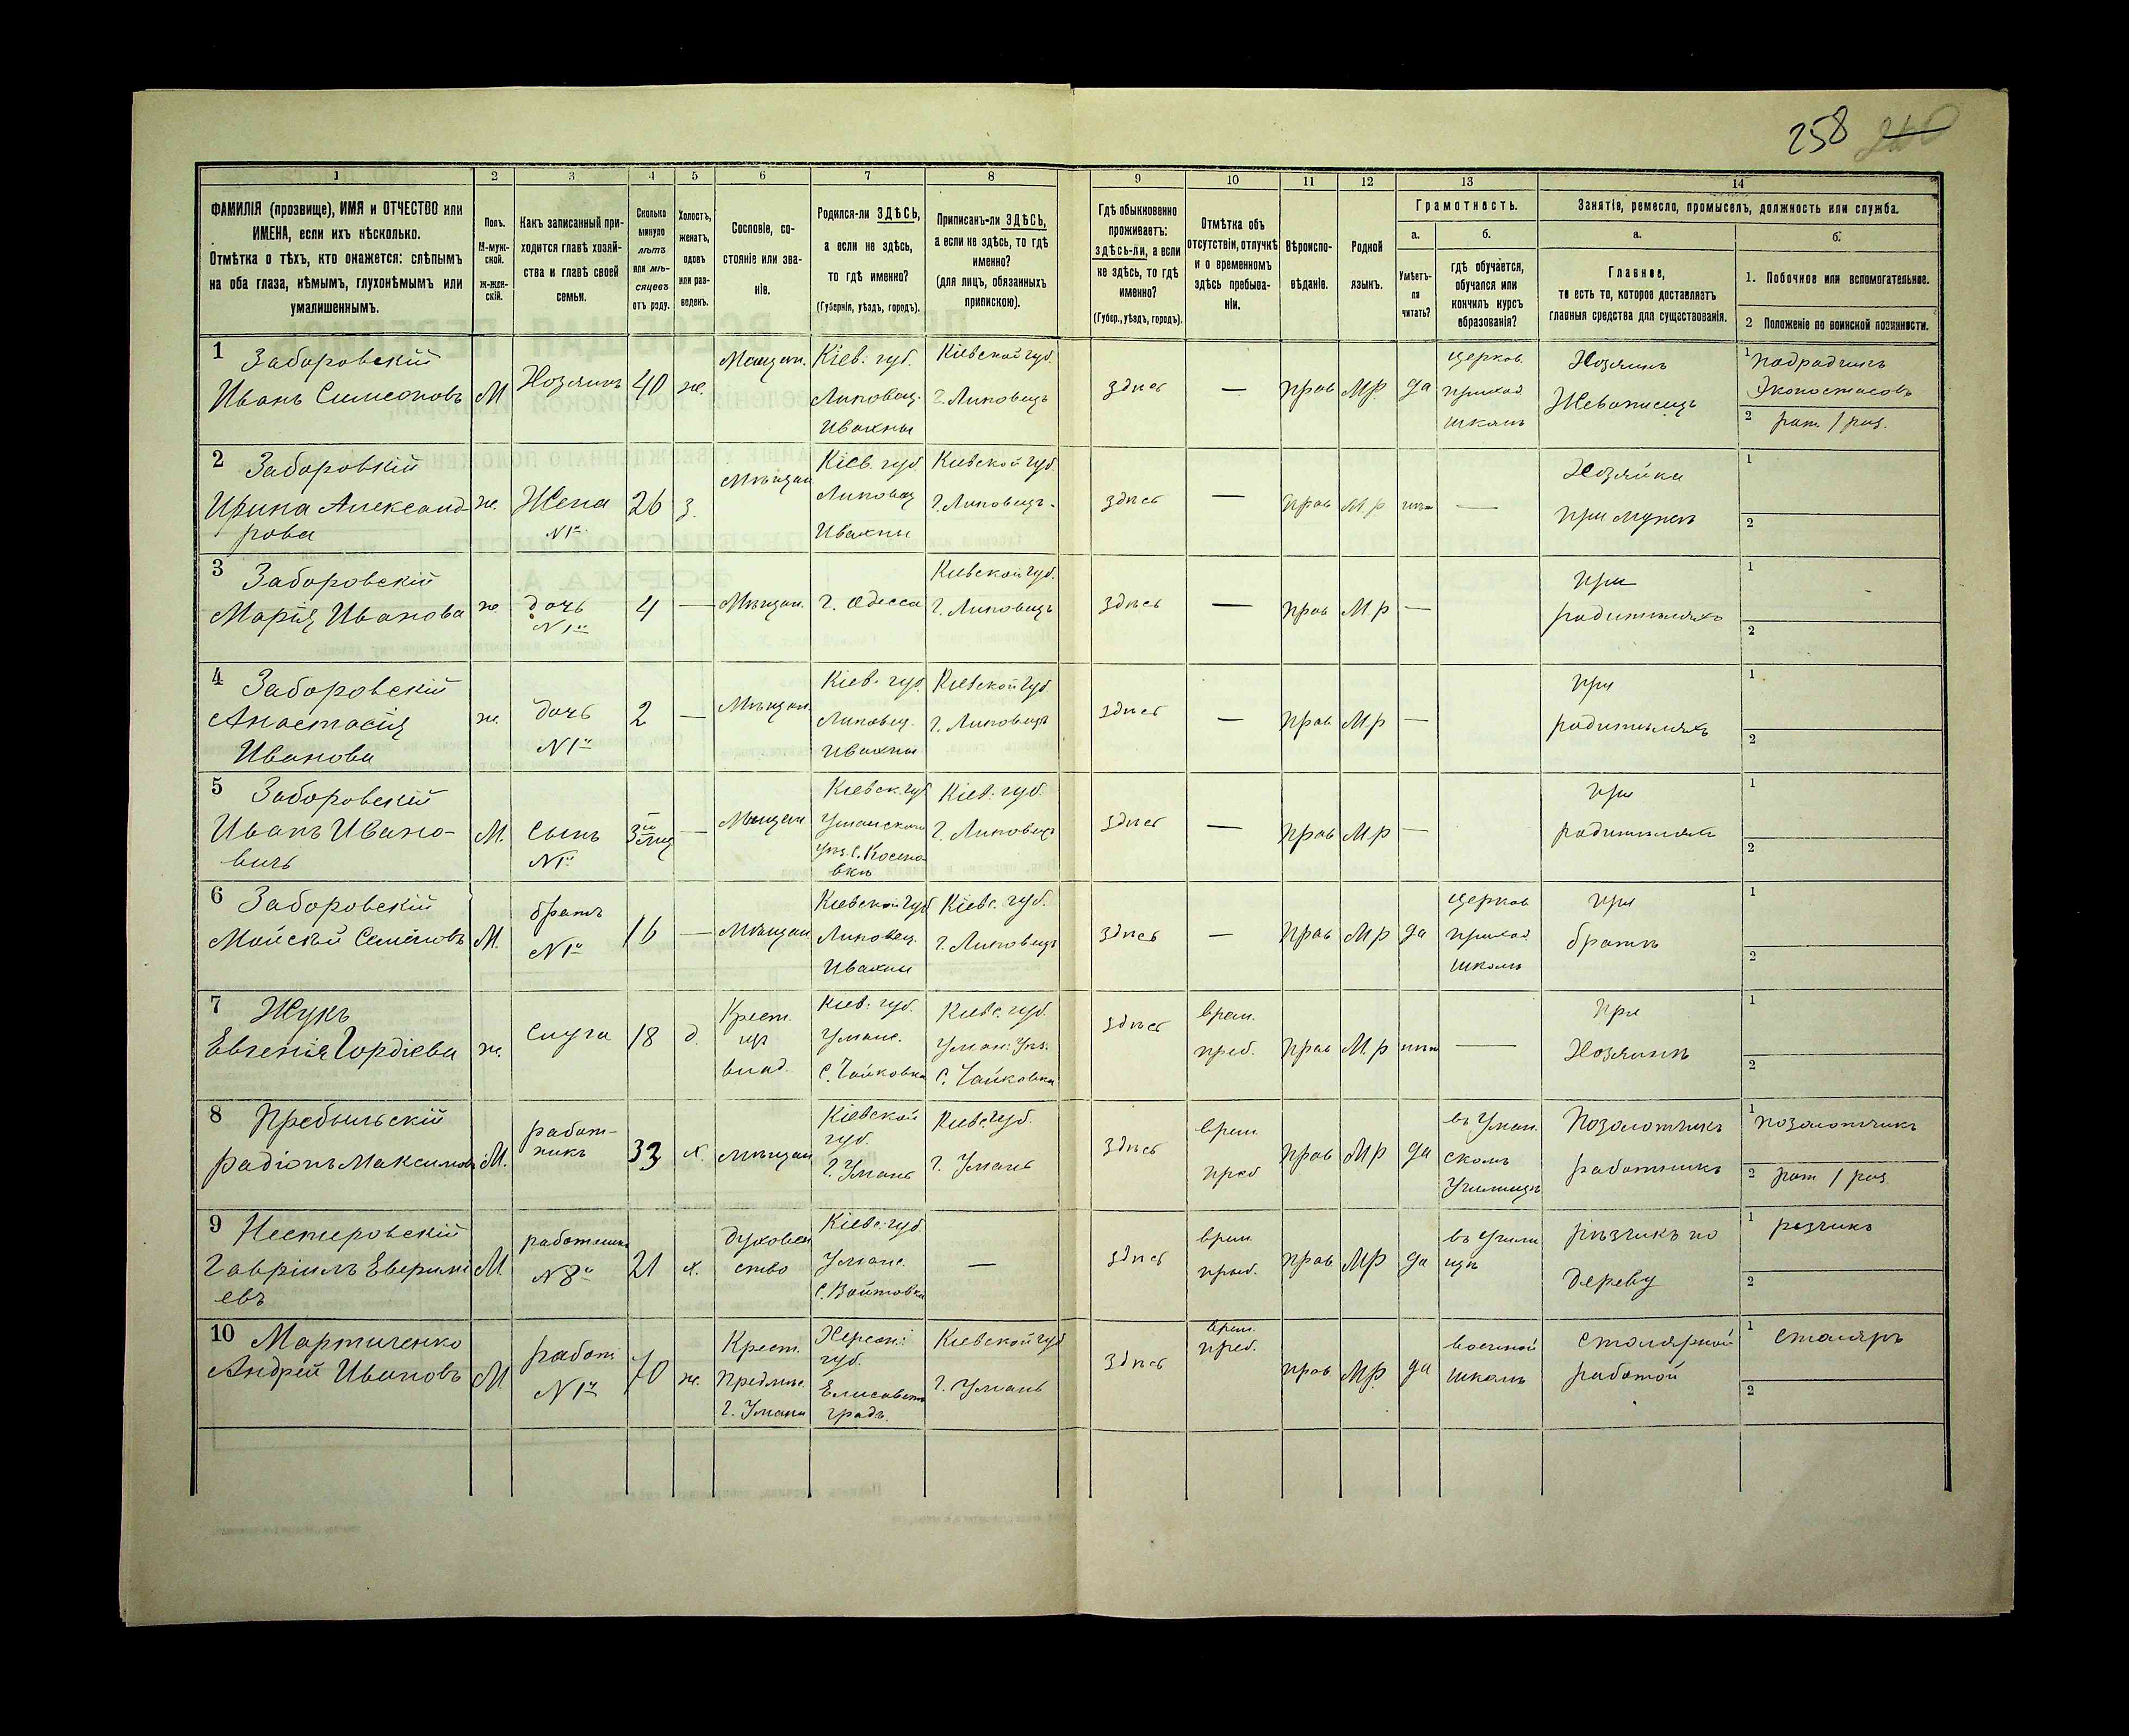 258 240
1 2 3 4 5 6 7 8 9 10 11 12 13 14
ФАМИЛІЯ (прозвище), ИМЯ и ОТЧЕСТВО или
ИМЕНА, если ихъ нѣсколько.
Отмѣтка о тѣхъ, кто окажется: слѣпымъ
на оба глаза, нѣмымъ, глухонѣмымъ или
умалишеннымъ.
Полъ.
М-муж-
ской.
Ж-жен-
скій.
Какъ записанный при-
ходится главѣ хозяй-
ства и главѣ своей
семьи.
Сколько
минуло
лѣтъ
или мѣ-
сяцевъ
отъ роду.
Холостъ,
женатъ,
вдовъ
или раз-
веденъ.
Сословіе, со-
стояніе или зва-
ніе.
Родился-ли ЗДѢСЬ,
а если не здѣсь,
то гдѣ именно?
(Губернія, уѣздъ, городъ).
Приписанъ-ли ЗДѢСЬ,
а если не здѣсь, то гдѣ
именно?
(для лицъ, обязанныхъ
припискою).
Гдѣ обыкновенно
проживаетъ:
здѣсь-ли, а если
не здѣсь, то гдѣ
именно?
(Губер., уѣздъ, городъ).
Отмѣтка объ
отсутствіи, отлучкѣ
и о временномъ
здѣсь пребыва-
ніи.
Вѣроиспо-
вѣданіе.
Родной
языкъ.
Грамотность.
а.
Умѣетъ-
ли
читать?
б.
гдѣ обучается,
обучался или
кончилъ курсъ
образованія?
Занятія, ремесло, промыселъ, должность или служба.
а.
Главное,
то есть то, которое доставляетъ
главныя средства для существованія.
б.
1. Побочное или вспомогательное.
2 Положеніе по воинской повинности.
1 Заборовскій
Иванъ Симеоновъ
М
Хозяинъ
40
ж.
Мещан.
Кіев. губ.
Липовец.
Ивахны
Кіевской губ.
г. Липовецъ
здѣсь
—
прав
М.р.
да
церков.
приход.
школѣ
Хозяинъ
Живописецъ
1 Подрядчикъ
Экопостасовъ
2 рат. 1 раз.
2 Заборовкій
Ирина Александ-
рова
ж.
Жена
N 1го
26
з.
Мѣщан
Кіев. губ
Липовец
Ивахны
Кіевской губ.
г. Липовецъ.
здѣсь
—
прав
М р
нѣт
—
Хозяйка
при мужѣ
1
2
3 Заборовскій
Марія Иванова
ж
дочь
N 1го
4
—
Мѣщан.
г. Одесса
Кіевской губ.
г. Липовецъ
здѣсь
—
прав
М р
—
при
родителяхъ
1
2
4 Заборовскій
Анастасія
Иванова
ж.
дочь
N 1го
2
—
Мѣщан.
Кіев. губ.
Липовец.
Ивахны
Кіевской губ.
г. Липовецъ
здѣсь
—
прав
М р
—
при
родителяхъ
1
2
5 Заборовскій
Иванъ Ивано-
вичъ
М.
сынъ
N 1го
3 мц
—
Мещан
Кіевск. губ
Уманскаго
Уѣз. с. Косено-
вкѣ
Кіев. губ.
г. Липовецъ
здѣсь
—
прав
М р
—
при
родителях
1
2
6 Заборовскій
Мойсей Семеновъ
М.
братъ
N 1го
16
—
Мѣщан
Кіевской губ
Липовец.
Ивахны
Кіевс. губ.
г. Липовецъ
здѣсь
—
прав
М р
да
церков
приход.
школѣ
при
братѣ
1
2
7 Жукъ
Евгенія Гордіева
ж.
слуга
18
д.
Крест.
из
влад.
Кіев. губ.
Уманс.
с. Чайковка
Кіевс. губ.
Уман. Уѣз.
с. Чайковка
здѣсь
врем.
преб.
прав
М. р
нѣт
—
При
Хозяинѣ
1
2
8 Пребыльскій
Радіонъ Максимовъ
М.
работ-
никъ
33
х.
мѣщан
Кіевской
губ.
г. Умань
Кіевс губ.
г. Умань
здѣсь
врем.
преб
прав
М р
да
въ Уман.
скомъ
Училищѣ
Позолотчикъ
работникъ
1 позолотчикъ
2 рат 1 раз.
9 Нестеровскій
Гавріилъ
евъ
М
работникъ
N 8го
21
х.
духовен
ство
Кіевс. губ.
Уманс.
с. Войтовка
—
здѣсь
врем.
преб.
прав
М р
да
въ Учили
щѣ
рѣзчикъ по
дереву
1 резчикъ
2
10 Мартиченко
Андрей Ивановъ
М
работ
N 1го
70
ж.
Крест.
Предмѣс.
г. Умани
Херсон.
губ.
Елисавет
градъ.
Кіевской губ
г. Умань
здѣсь
врем.
преб.
прав.
М.р.
да
военной
школѣ
Столярной
работой
1 столяръ
2